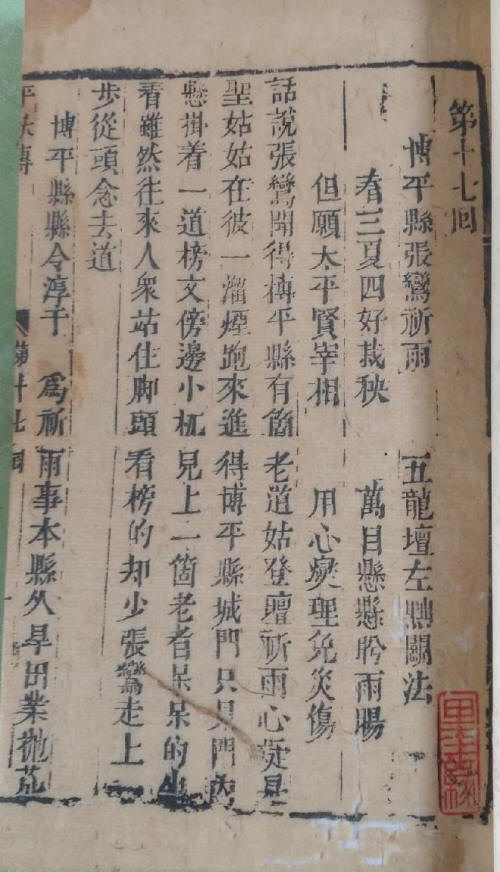 第十七回
博平縣張鸞祈雨 五龍壇左黜鬬法
春三夏四好栽秧 萬目懸懸盻雨暘
但願太平賢宰相 用心燮理免災傷
話說張鸞聞得博平縣有箇老道姑登壇祈雨心疑是
聖姑姑在彼一溜煙跑來進得博平縣城門只見門內
懸掛着一道榜文傍邊小杌兒上一箇老者呆呆的坐
看雖然往來人衆站住脚頭看榜的却少張鸞走上一
步從頭念去道
博平縣縣令淳于 爲祈雨事本縣久旱田業抛荒
平妖傳 第十七回